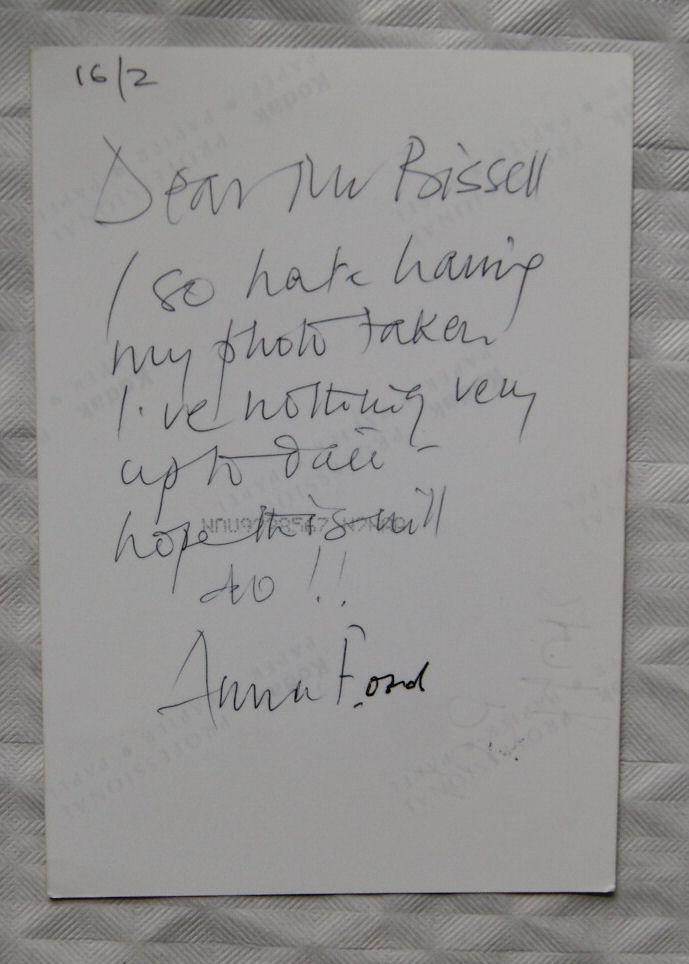 16/2
Dear Mr Bissell
I so hate having
my photo taken
I've nothing very
up to date -
hope this will
do !!
Anna Ford